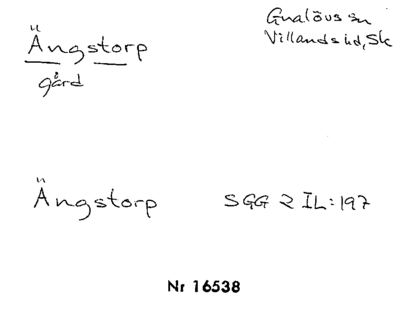 Ängstorp
gård
Gualövs sn
Villands hd, Sk
Ängstorp
SGG 2 IL:197
Nr 16538